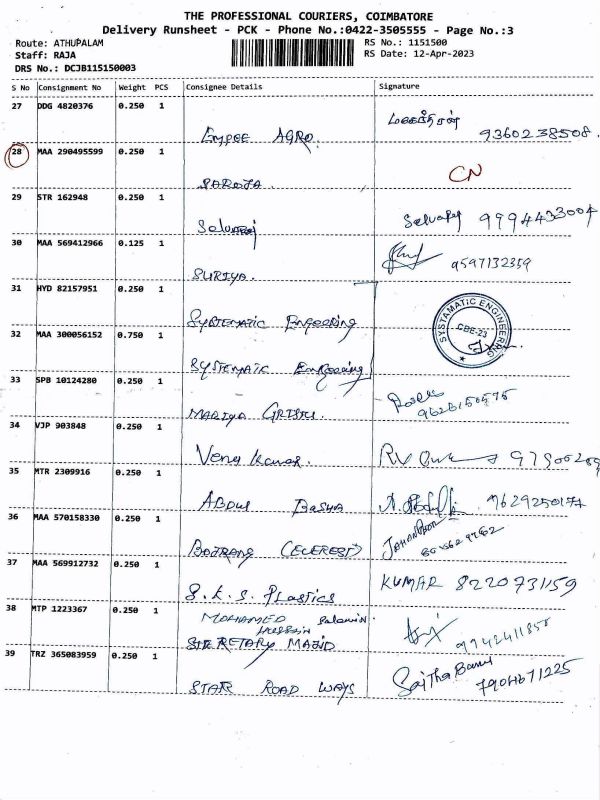 THE PROFESSIONAL COURIERS, COIMBATORE
Delivery Runsheet - PCK - Phone No.:0422-3505555 - Page No.:3
Route: ATHUPALAM RS No.: 1151500
Staff: RAJA RS Date: 12-Apr-2023
DRS No.: DCJB115150003
S No Consignment No Weight PCS Consignee Details Signature
27 DDG 4820376 0.250 1
EMPEE AGRO. மகேந்திரன் 9360238508.
28 MAA 290495599 0.250 1
SAROJA. CN
29 STR 162948 0.250 1
Selvaraj Selvaraj 9994433004
30 MAA 569412966 0.125 1
SURIYA. 9597132359
31 HYD 82157951 0.250 1
SYSTEMATIC Engeering
SYSTAMATIC ENGINEERING
CBE-23
32 MAA 300056152 0.750 1
SYSTEMATIC Engeering
33 SPB 10124280 0.250 1
MARIYA
34 VJP 903848 0.250 1
Venu Kumar.
35 MTR 2309916 0.250 1
ABDUL BASHA 9629250177
36 MAA 570158330 0.250 1
37 MAA 569912732 0.250 1
S.K.S. PLASTICS KUMAR 8220731159
38 MTP 1223367 0.250 1
MOHAMED
HUSSAIN
SECRETARY MAJID 9942411858
39 TRZ 365083959 0.250 1
STAR ROAD WAYS Sajtha Banu 7904671225